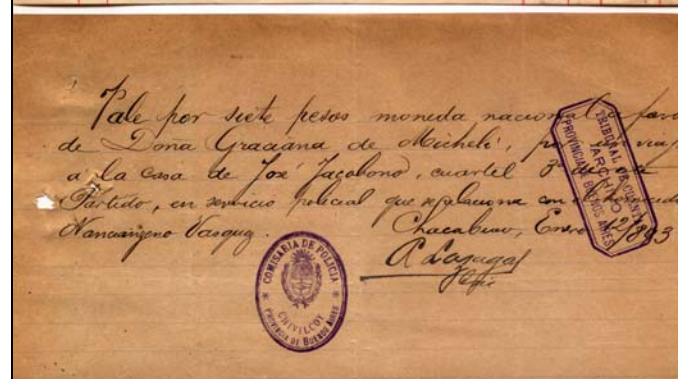 Vale por siete pesos moneda nacional a favor
de Doña Graciana de Micheli, por un viaje
a la casa de José Jacobono, cuartel 3º de este
Partido, en servicio policial que se relaciona con el
Vasquez.
Chacabuco, Enero 12/893
Jefe
COMISARIA DE POLICIA
CHIVILCOY
PROVINCIA DE BUENOS AIRES
TRIBUNAL DE CUENTAS
ARCHIVO
PROVINCIA DE BUENOS AIRES